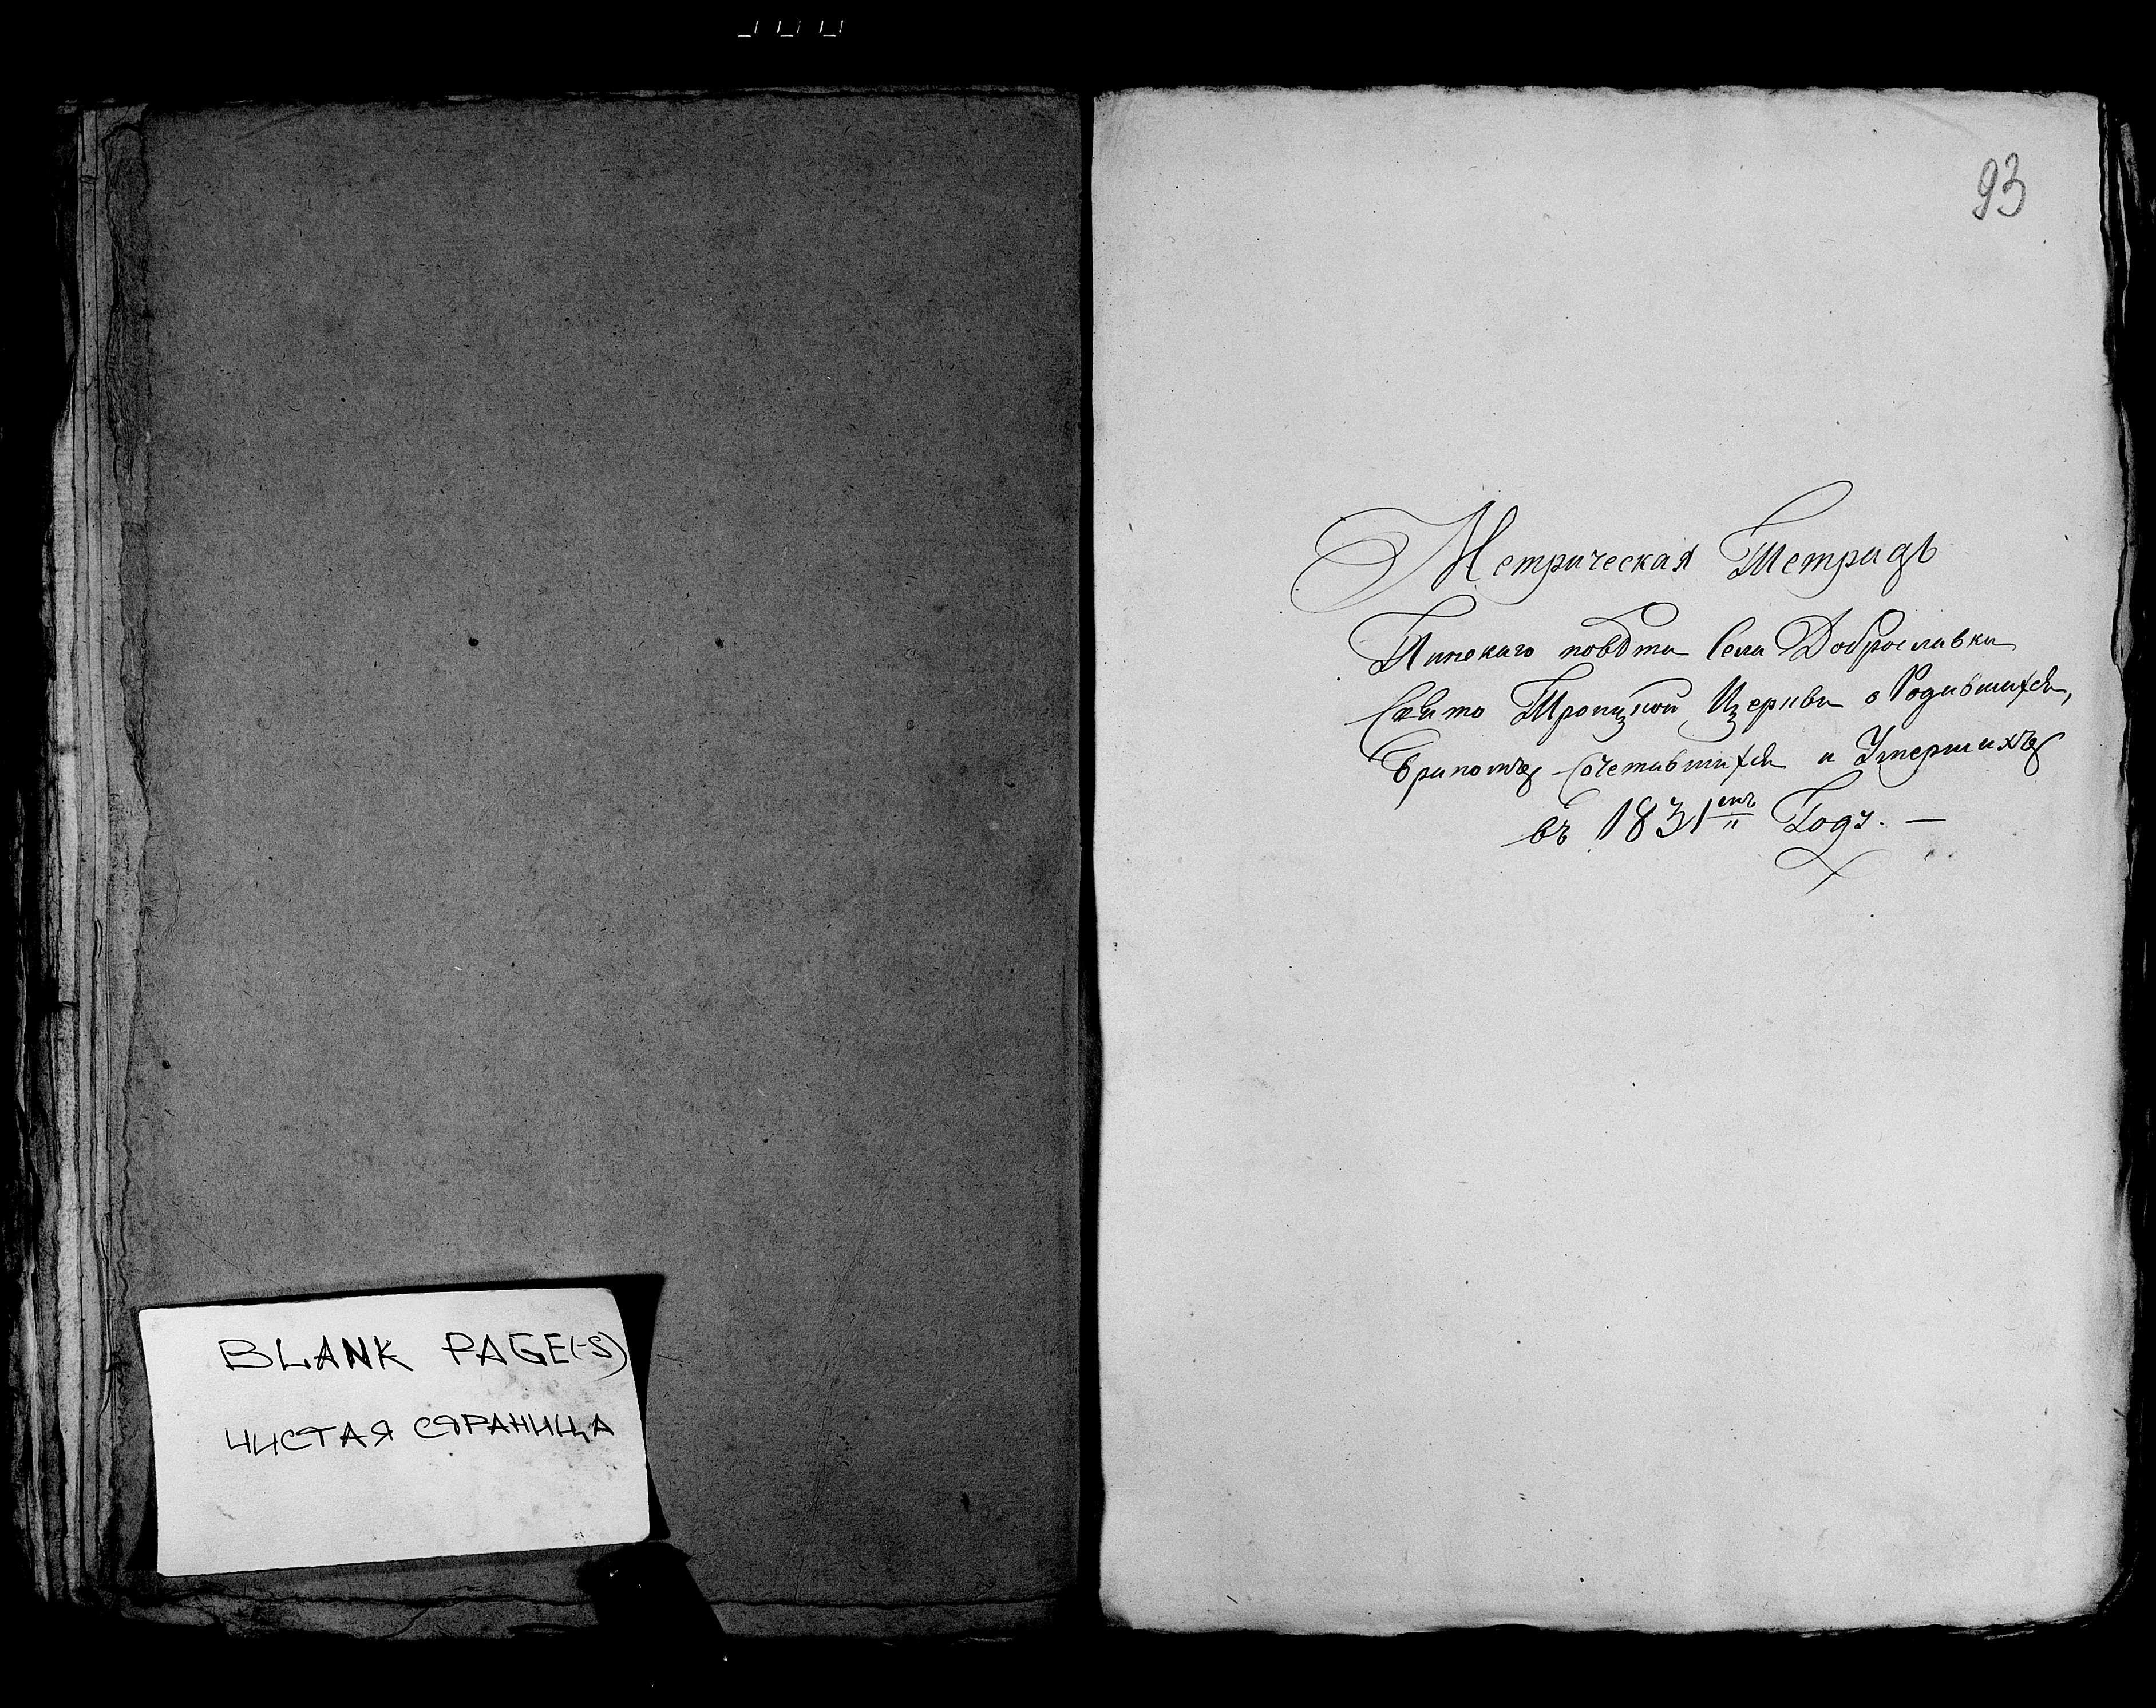 BLANK PAGE(-S)
ЧИСТАЯ СТРАНИЦА
93
Метрическая Тетрадь
Пинскаго повѣта Села Доброславки
Свято Троицкой Церкви о Родившихся,
Бракомъ Сочетавшихся и Умершихъ
въ 1831емъ Году. —